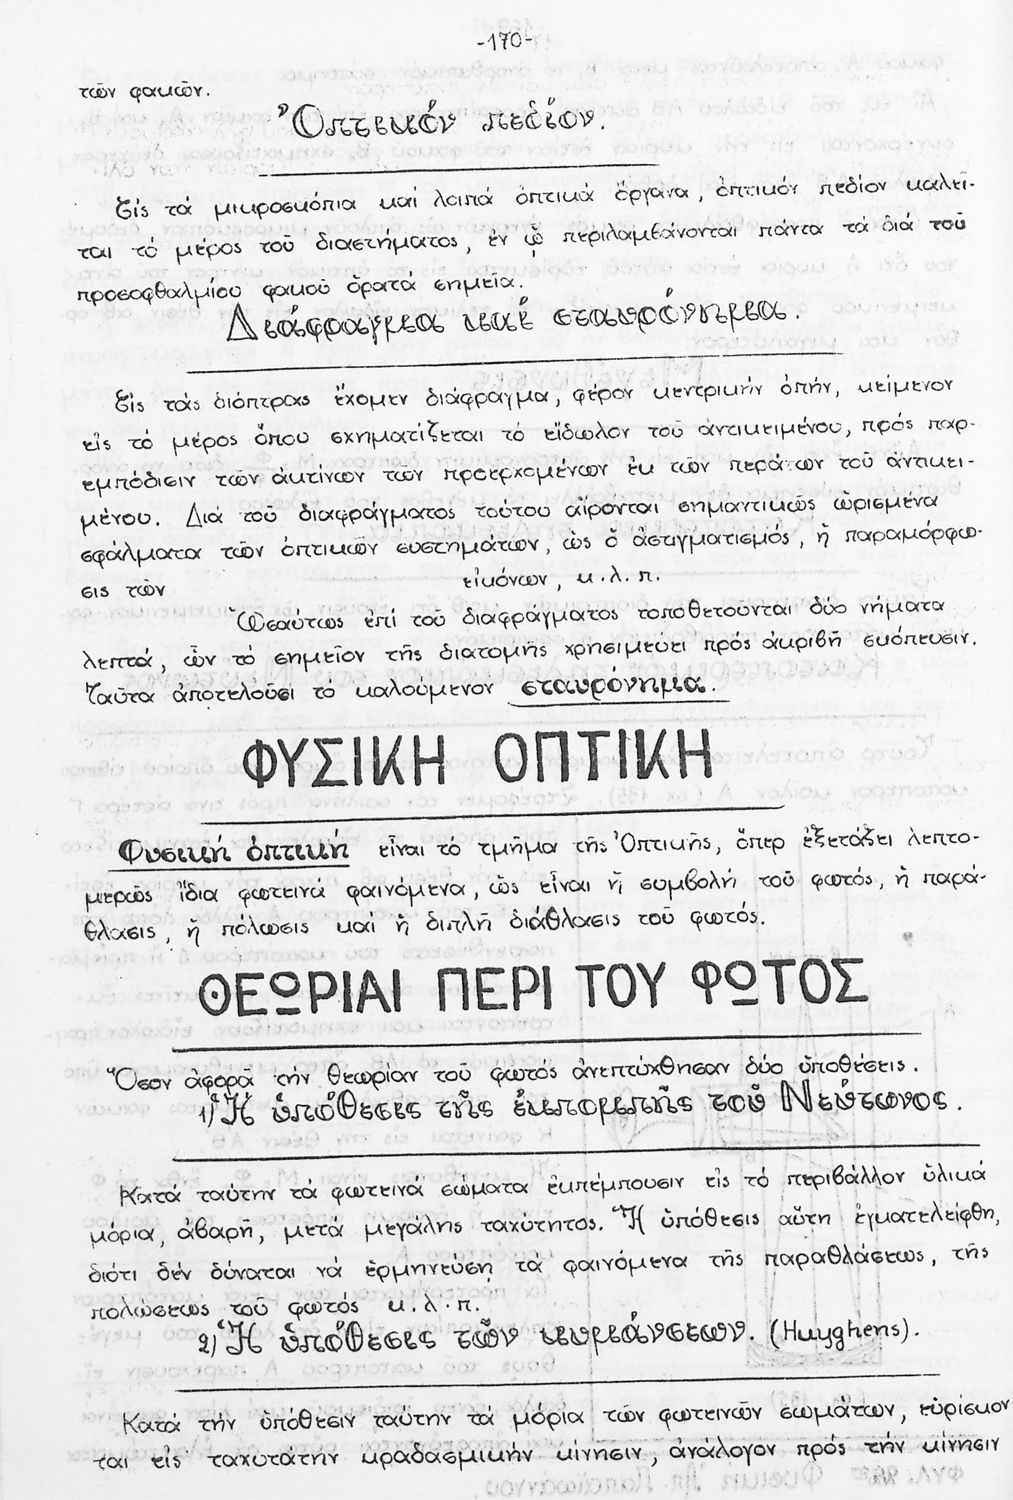 -170-
τῶν φακῶν.
Ὀπτικόν πεδίον.
Εἰς τά μικροσκόπια καί λοιπά ὀπτικά ὄργανα, ὀπτικόν πεδίον καλεῖ-
ται τό μέρος τοῦ διαστήματος, ἐν ᾧ περιλαμβάνονται πάντα τά διά τοῦ
προσοφθαλμίου φακοῦ ὁρατά σημεῖα.
Διάφραγμα καί σταυρόνημα.
Εἰς τάς διόπτρας ἔχομεν διάφραγμα, φέρον κεντρικήν ὀπήν, κείμενον
εἰς τό μέρος ὅπου σχηματίζεται τό εἴδωλον τοῦ ἀντικειμένου, πρός παρ-
εμπόδισιν τῶν ἀκτίνων τῶν προερχομένων ἐκ τῶν περάτων τοῦ ἀντικει-
μένου. Διά τοῦ διαφράγματος τούτου αἴρονται σημαντικῶς ὡρισμένα
σφάλματα τῶν ὀπτικῶν συστημάτων, ὡς ὁ ἀστιγματισμός, ἡ παραμόρφω-
σις τῶν εἰκόνων, κ.λ.π.
Ὡσαύτως ἐπί τοῦ διαφράγματος τοποθετοῦνται δύο νήματα
λεπτά, ὧν τό σημεῖον τῆς διατομῆς χρησιμεύει πρός ἀκριβῆ σκόπευσιν.
Ταῦτα ἀποτελοῦσι τό καλούμενον σταυρόνημα.
ΦΥΣΙΚΗ ΟΠΤΙΚΗ
Φυσική ὀπτική εἶναι τό τμῆμα τῆς Ὀπτικῆς, ὅπερ ἐξετάζει λεπτο-
μερῶς ἴδια φωτεινά φαινόμενα, ὡς εἶναι ἡ συμβολή τοῦ φωτός, ἡ παρά-
θλασις, ἡ πόλωσις καί ἡ διπλῆ διάθλασις τοῦ φωτός.
ΘΕΩΡΙΑΙ ΠΕΡΙ ΤΟΥ ΦΩΤΟΣ
Ὅσον ἀφορᾶ τήν θεωρίαν τοῦ φωτός ἀνεπτύχθησαν δύο ὑποθέσεις.
1) Ἡ ὑπόθεσις τῆς ἐκπομπῆς τοῦ Νεύτωνος.
Κατά ταύτην τά φωτεινά σώματα ἐκπέμπουσιν εἰς τό περιβάλλον ὑλικά
μόρια, ἀβαρῆ, μετά μεγάλης ταχύτητος. Ἡ ὑπόθεσις αὕτη ἐγκατελείφθη,
διότι δέν δύναται νά ἑρμηνεύσῃ τά φαινόμενα τῆς παραθλάσεως, τῆς
πολώσεως τοῦ φωτός κ.λ.π.
2) Ἡ ὑπόθεσις τῶν κυμάνσεων. (Huyghens).
Κατά τήν ὑπόθεσιν ταύτην τά μόρια τῶν φωτεινῶν σωμάτων, εὑρίσκον
ται εἰς ταχυτάτην κραδασμικήν κίνησιν, ἀνάλογον πρός τήν κίνησιν